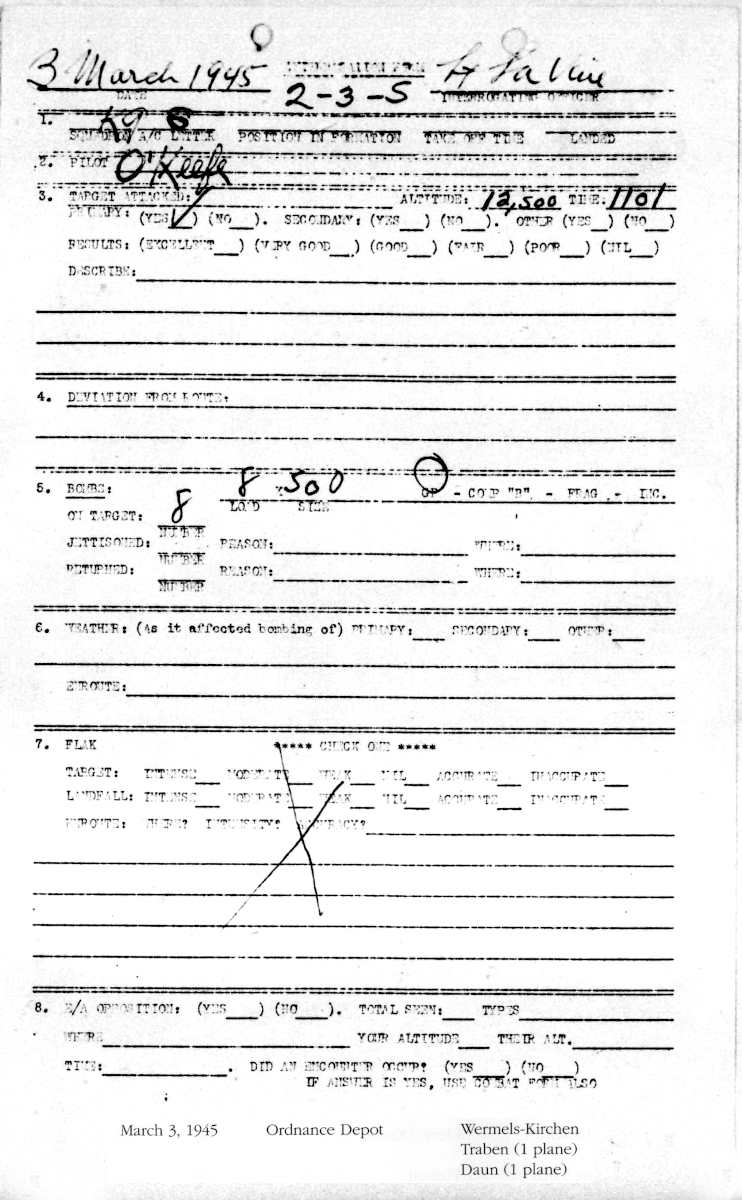 3 March 1945 INTERROGATION FORM Lt LaVine
DATE 2-3-5 INTERROGATING OFFICER
1. K9 G
SQUADRON A/C LETTER POSITION IN FORMATION TAKE OFF TIME LANDED
2. PILOT O'Keefe
3. TARGET ATTACKED: ALTITUDE: 12,500 TIME: 1101
PRIMARY: (YES ✓) (NO__). SECONDARY: (YES__) (NO__). OTHER (YES__) (NO__)
RESULTS: (EXCELLENT__) (VERY GOOD__) (GOOD__) (FAIR__) (POOR__) (NIL__)
DESCRIBE:
4. DEVIATION FROM ROUTE:
5. BOMBS: 8 x 500 GP - COMP "B" - FRAG - INC.
LOAD SIZE
ON TARGET: 8
NUMBER
JETTISONED: REASON: WHERE:
NUMBER
RETURNED: REASON: WHERE:
NUMBER
6. WEATHER: (As it affected bombing of) PRIMARY:___ SECONDARY:___ OTHER:___
ENROUTE:
7. FLAK ***** CHECK ONE *****
TARGET: INTENSE__ MODERATE__ WEAK__ NIL__ ACCURATE__ INACCURATE__
LANDFALL: INTENSE__ MODERATE__ WEAK__ NIL__ ACCURATE__ INACCURATE__
ENROUTE: WHERE? INTENSITY? ACCURACY?
8. E/A OPPOSITION: (YES___) (NO___). TOTAL SEEN:___ TYPES
WHERE YOUR ALTITUDE___ THEIR ALT.
TIME: . DID AN ENCOUNTER OCCUR? (YES___) (NO___)
IF ANSWER IS YES, USE COMBAT FORM ALSO
March 3, 1945 Ordnance Depot Wermels-Kirchen
Traben (1 plane)
Daun (1 plane)